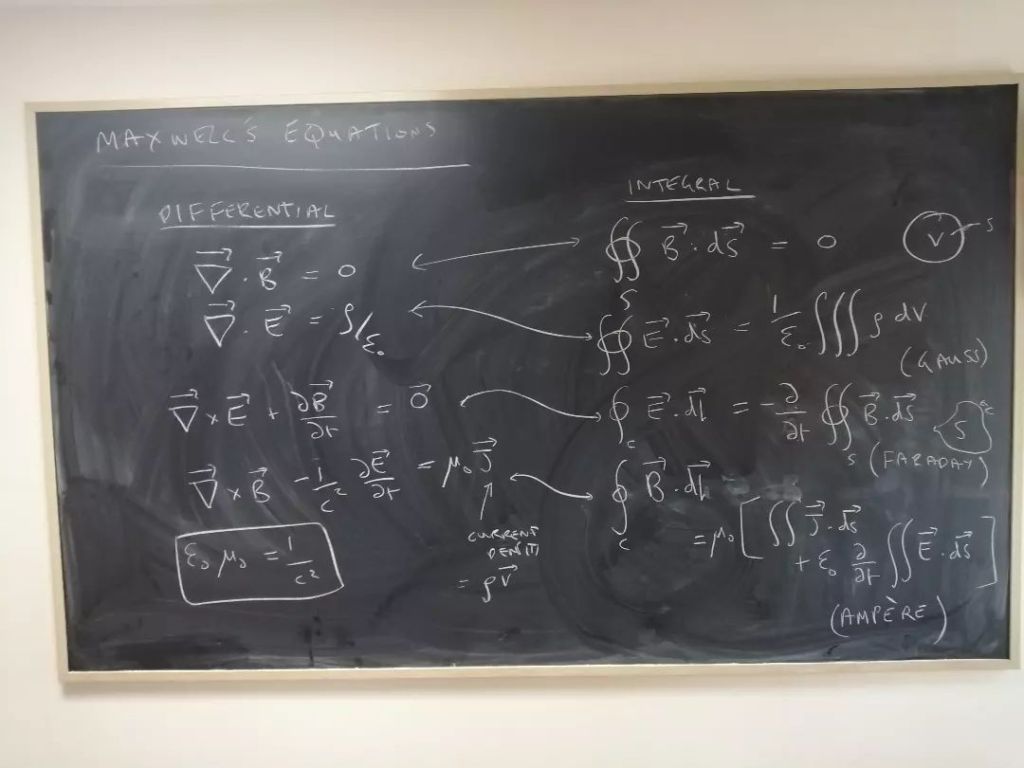 MAXWELL'S EQUATIONS
DIFFERENTIAL
∇⃗ · B⃗ = 0
∇⃗ · E⃗ = ρ/ε₀
∇⃗ × E⃗ + ∂B⃗/∂t = 0⃗
∇⃗ × B⃗ - 1/c² ∂E⃗/∂t = μ₀ J⃗
CURRENT
DENSITY
= ρv⃗
ε₀ μ₀ = 1/c²
INTEGRAL
∯ B⃗ · ds⃗ = 0
S
V S
∯ E⃗ · ds⃗ = 1/ε₀ ∭ ρ dV
(GAUSS)
∮ E⃗ · dl⃗ = -∂/∂t ∯ B⃗ · ds⃗
c S S c
(FARADAY)
∮ B⃗ · dl⃗
c
= μ₀ [ ∬ J⃗ · ds⃗
+ ε₀ ∂/∂t ∬ E⃗ · ds⃗ ]
(AMPÈRE)